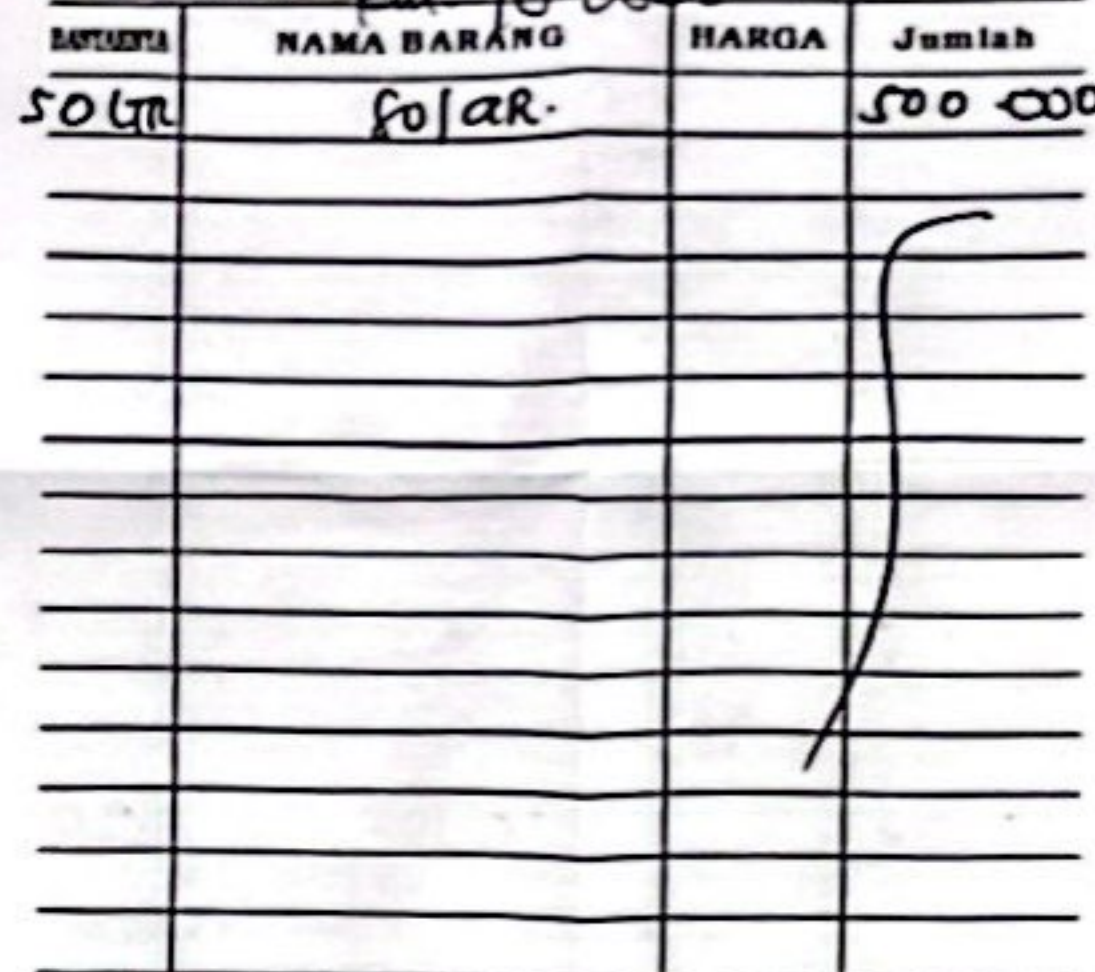 BANYAKNYA NAMA BARANG HARGA Jumlah
50 LTR SolaR. 500.000